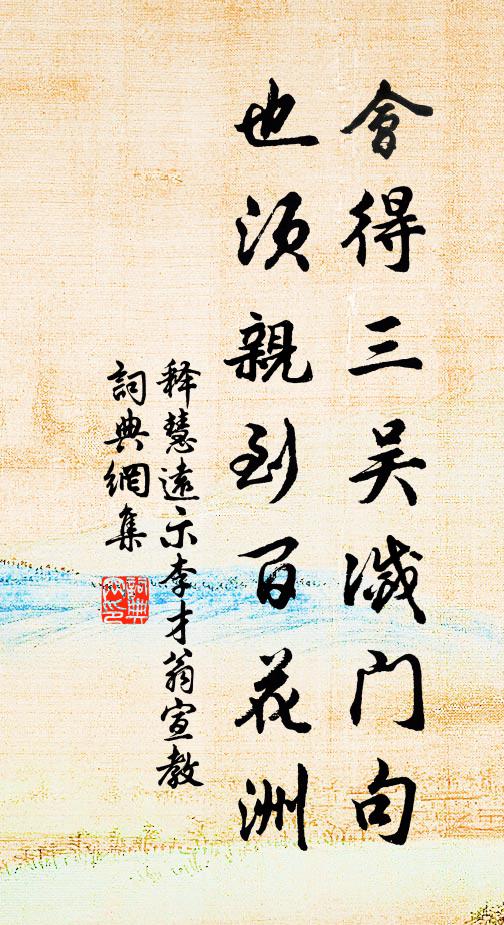 會得三吴滅門句
也须親到百花洲
释慧遠示李才翁宣教
詞典網集